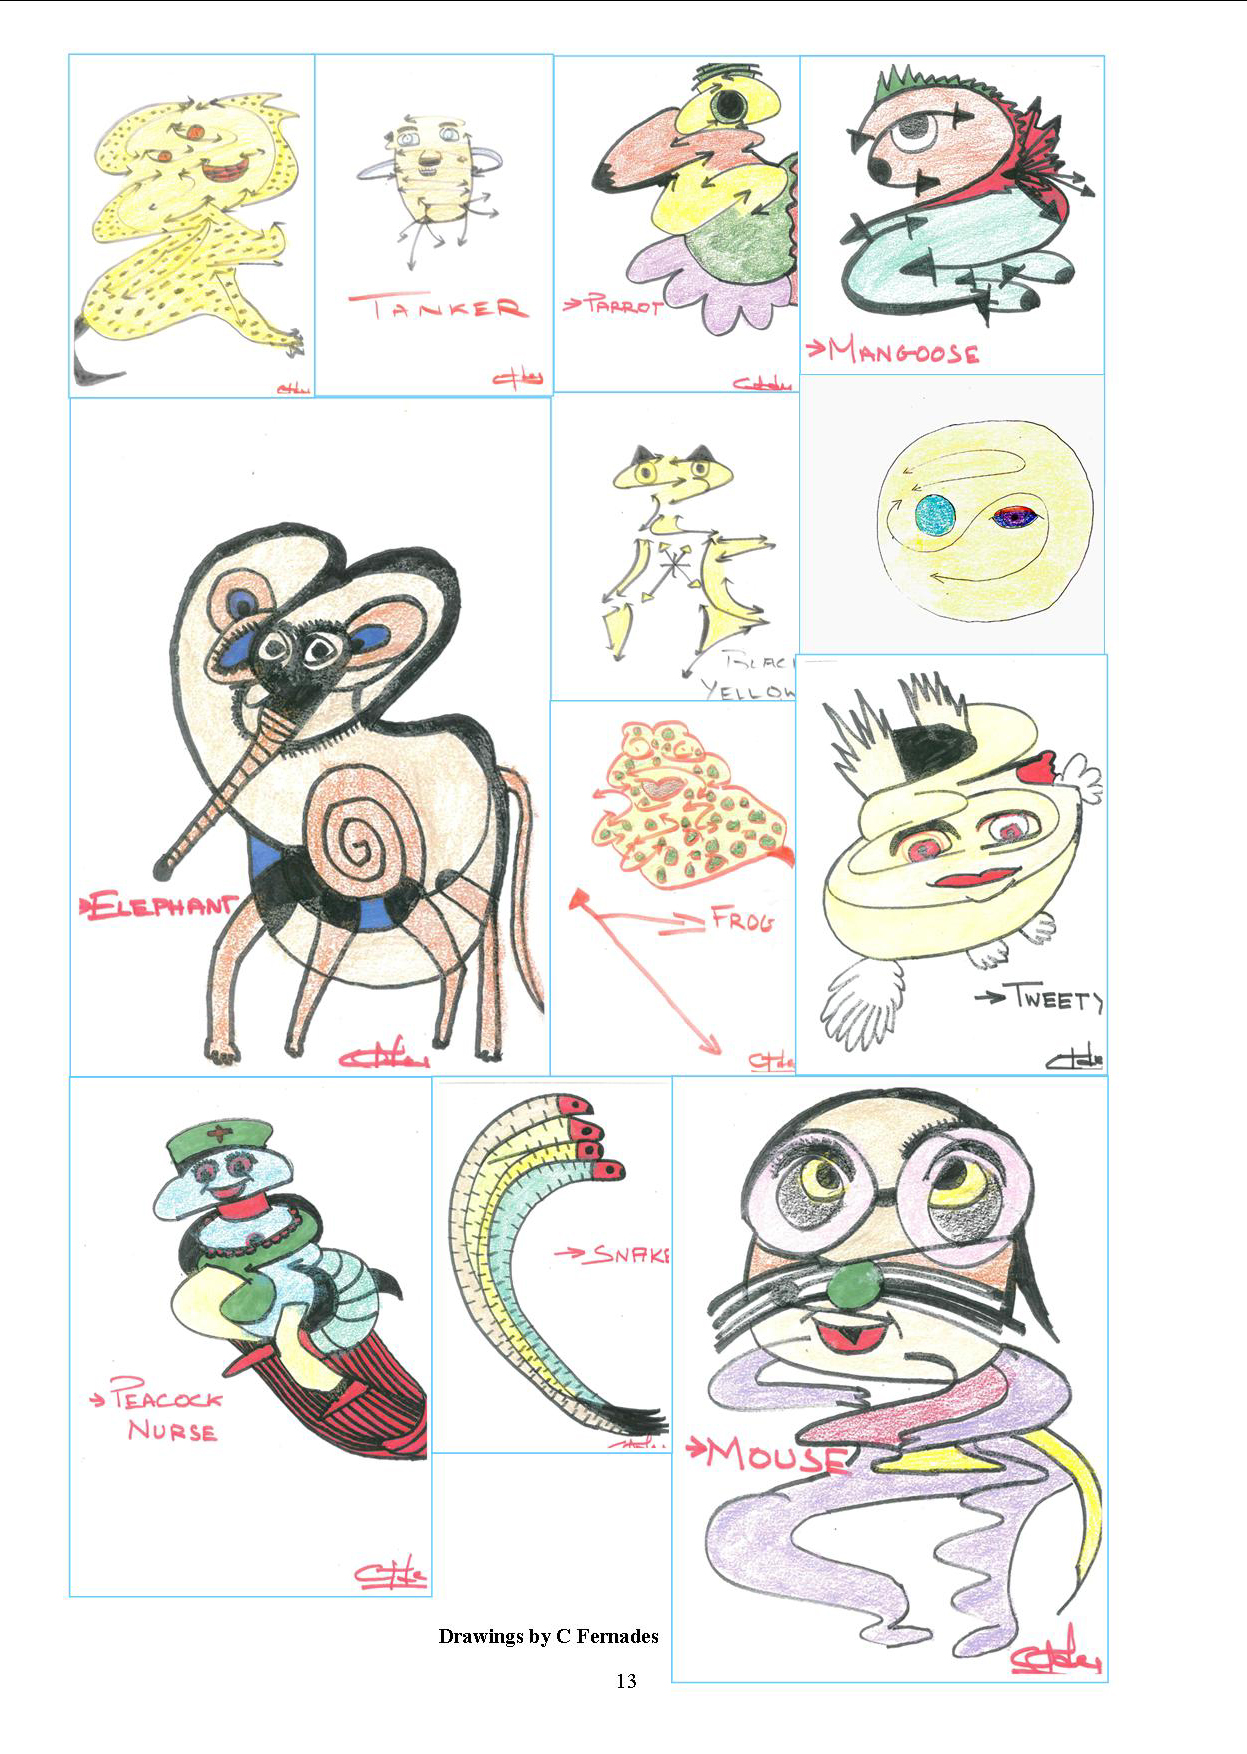 TANKER
PARROT
MANGOOSE
ELEPHANT
BLAC
YELLOW
FROG
TWEETY
PEACOCK
NURSE
SNAKE
MOUSE
Drawings by C Fernades
13